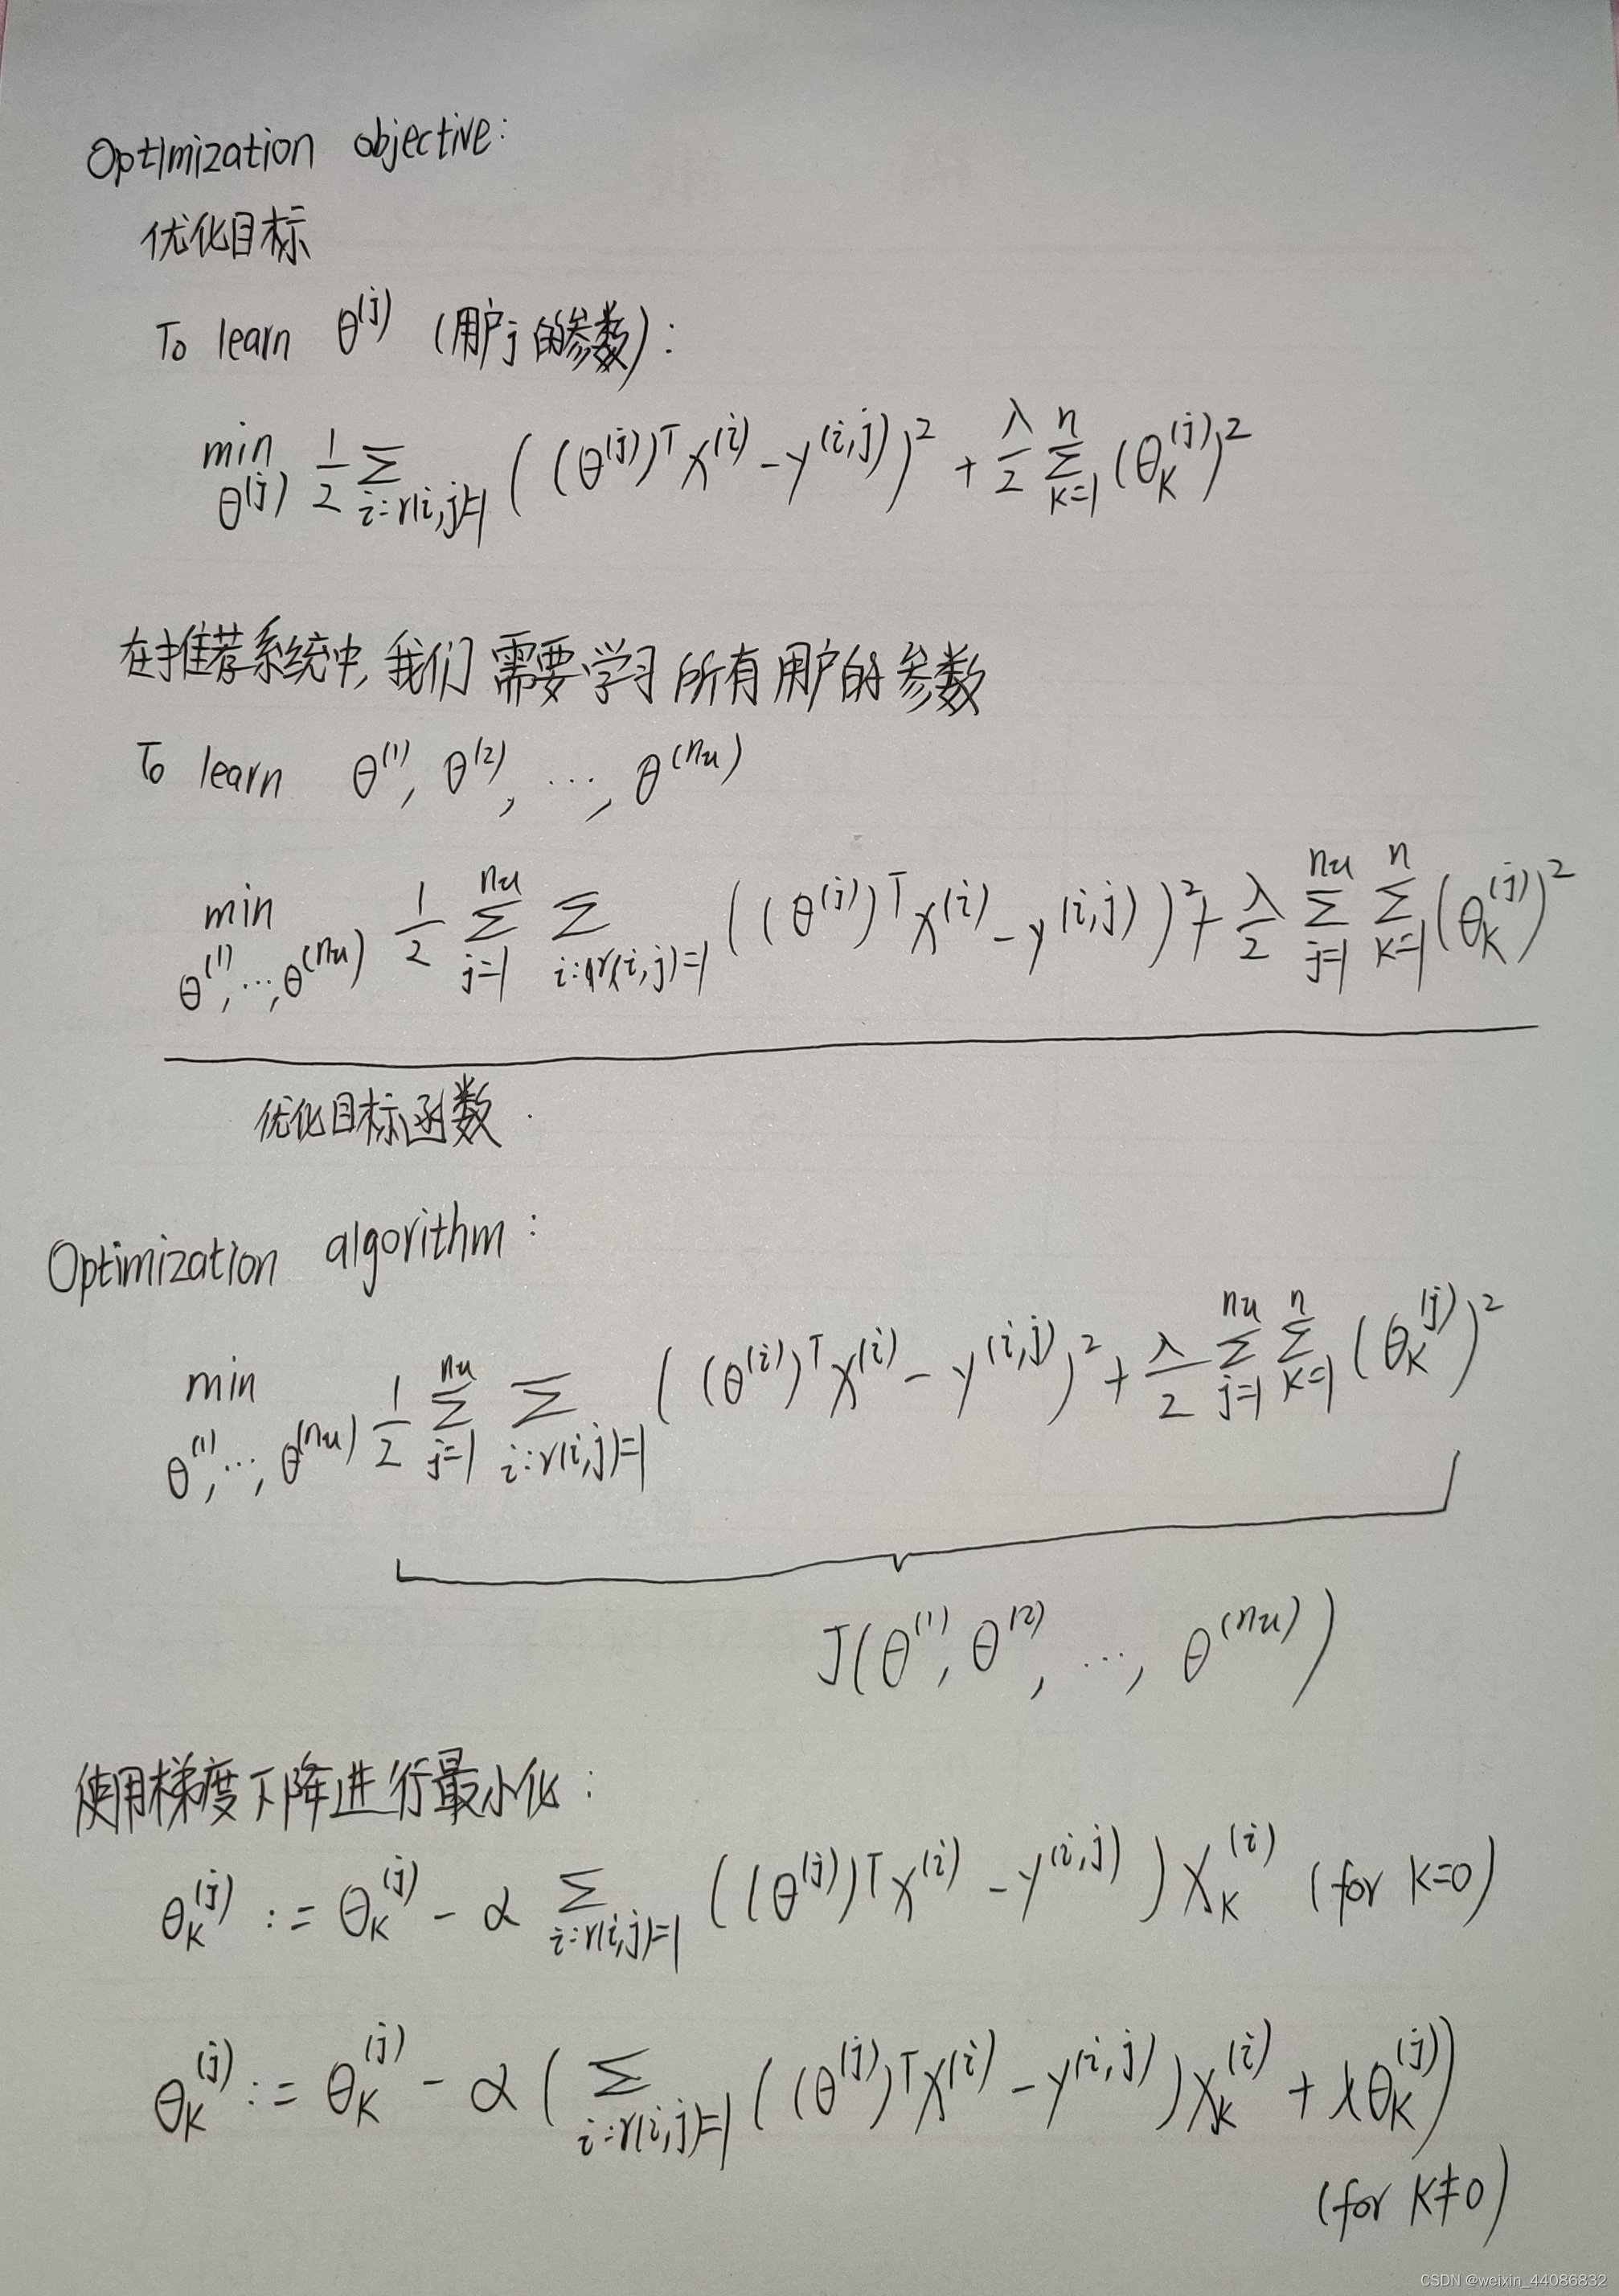 Optimization objective:
优化目标
To learn θ^(j) (用户j的参数):
min_{θ^(j)} 1/2 Σ_{i:r(i,j)=1} ((θ^(j))^T x^(i) - y^(i,j))^2 + λ/2 Σ_{k=1}^{n} (θ_k^(j))^2
在推荐系统中,我们需要学习所有用户的参数
To learn θ^(1), θ^(2), ..., θ^(nu)
min_{θ^(1),...,θ^(nu)} 1/2 Σ_{j=1}^{nu} Σ_{i:r(i,j)=1} ((θ^(j))^T x^(i) - y^(i,j))^2 + λ/2 Σ_{j=1}^{nu} Σ_{k=1}^{n} (θ_k^(j))^2
优化目标函数
Optimization algorithm:
min_{θ^(1),...,θ^(nu)} 1/2 Σ_{j=1}^{nu} Σ_{i:r(i,j)=1} ((θ^(i))^T x^(i) - y^(i,j))^2 + λ/2 Σ_{j=1}^{nu} Σ_{k=1}^{n} (θ_k^(j))^2
J(θ^(1), θ^(2), ..., θ^(nu))
使用梯度下降进行最小化:
θ_k^(j) := θ_k^(j) - α Σ_{i:r(i,j)=1} ((θ^(j))^T x^(i) - y^(i,j)) x_k^(i) (for k=0)
θ_k^(j) := θ_k^(j) - α (Σ_{i:r(i,j)=1} ((θ^(j))^T x^(i) - y^(i,j)) x_k^(i) + λθ_k^(j))
(for k≠0)
CSDN @weixin_44086832